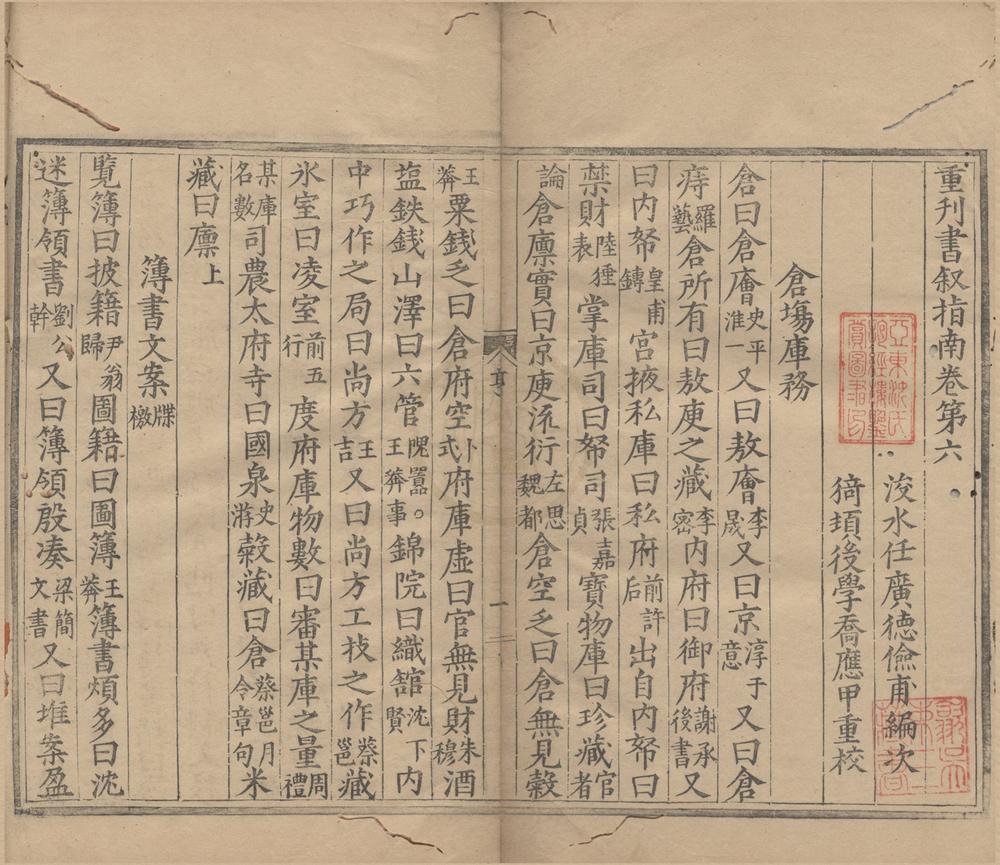 重刊書叙指南卷第六
浚水任廣德儉甫編次
猗頓後學喬應甲重校
倉塲庫務
倉曰倉廥史平淮一又曰敖廥李晟又曰京淳于意又曰倉
庤羅藝倉所有曰敖庾之藏李密内府曰御府謝承後書又
曰内帑皇甫鏄宮掖私庫曰私府前許后出自内帑曰
禁財陸贄表掌庫司曰帑司張嘉貞寶物庫曰珍藏宦者
論倉廪實曰京庾流衍左思魏都倉空乏曰倉無見穀
王莽粟錢乏曰倉府空卜式府庫虛曰官無見財朱穆酒
塩鉄錢山澤曰六管隗囂。王莽事錦院曰織舘沈下賢内
中巧作之局曰尚方王吉又曰尚方工技之作蔡邕藏
氷室曰凌室前五行度府庫物數曰審某庫之量周禮
某庫名數司農太府寺曰國泉史游穀藏曰倉蔡邕月令章句米
藏曰廪上
簿書文案牒檄
覽簿曰披籍尹翁歸圖籍曰圖簿王莽簿書煩多曰沈
迷簿領書劉公幹又曰簿領殷凑梁簡文書又曰堆案盈
亨
一